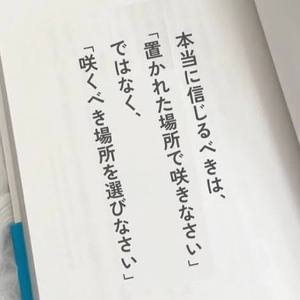 本当に信じるべきは、
「置かれた場所で咲きなさい」
ではなく、
「咲くべき場所を選びなさい」